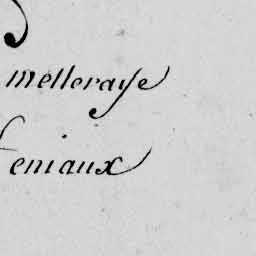 melleraye
feniaux